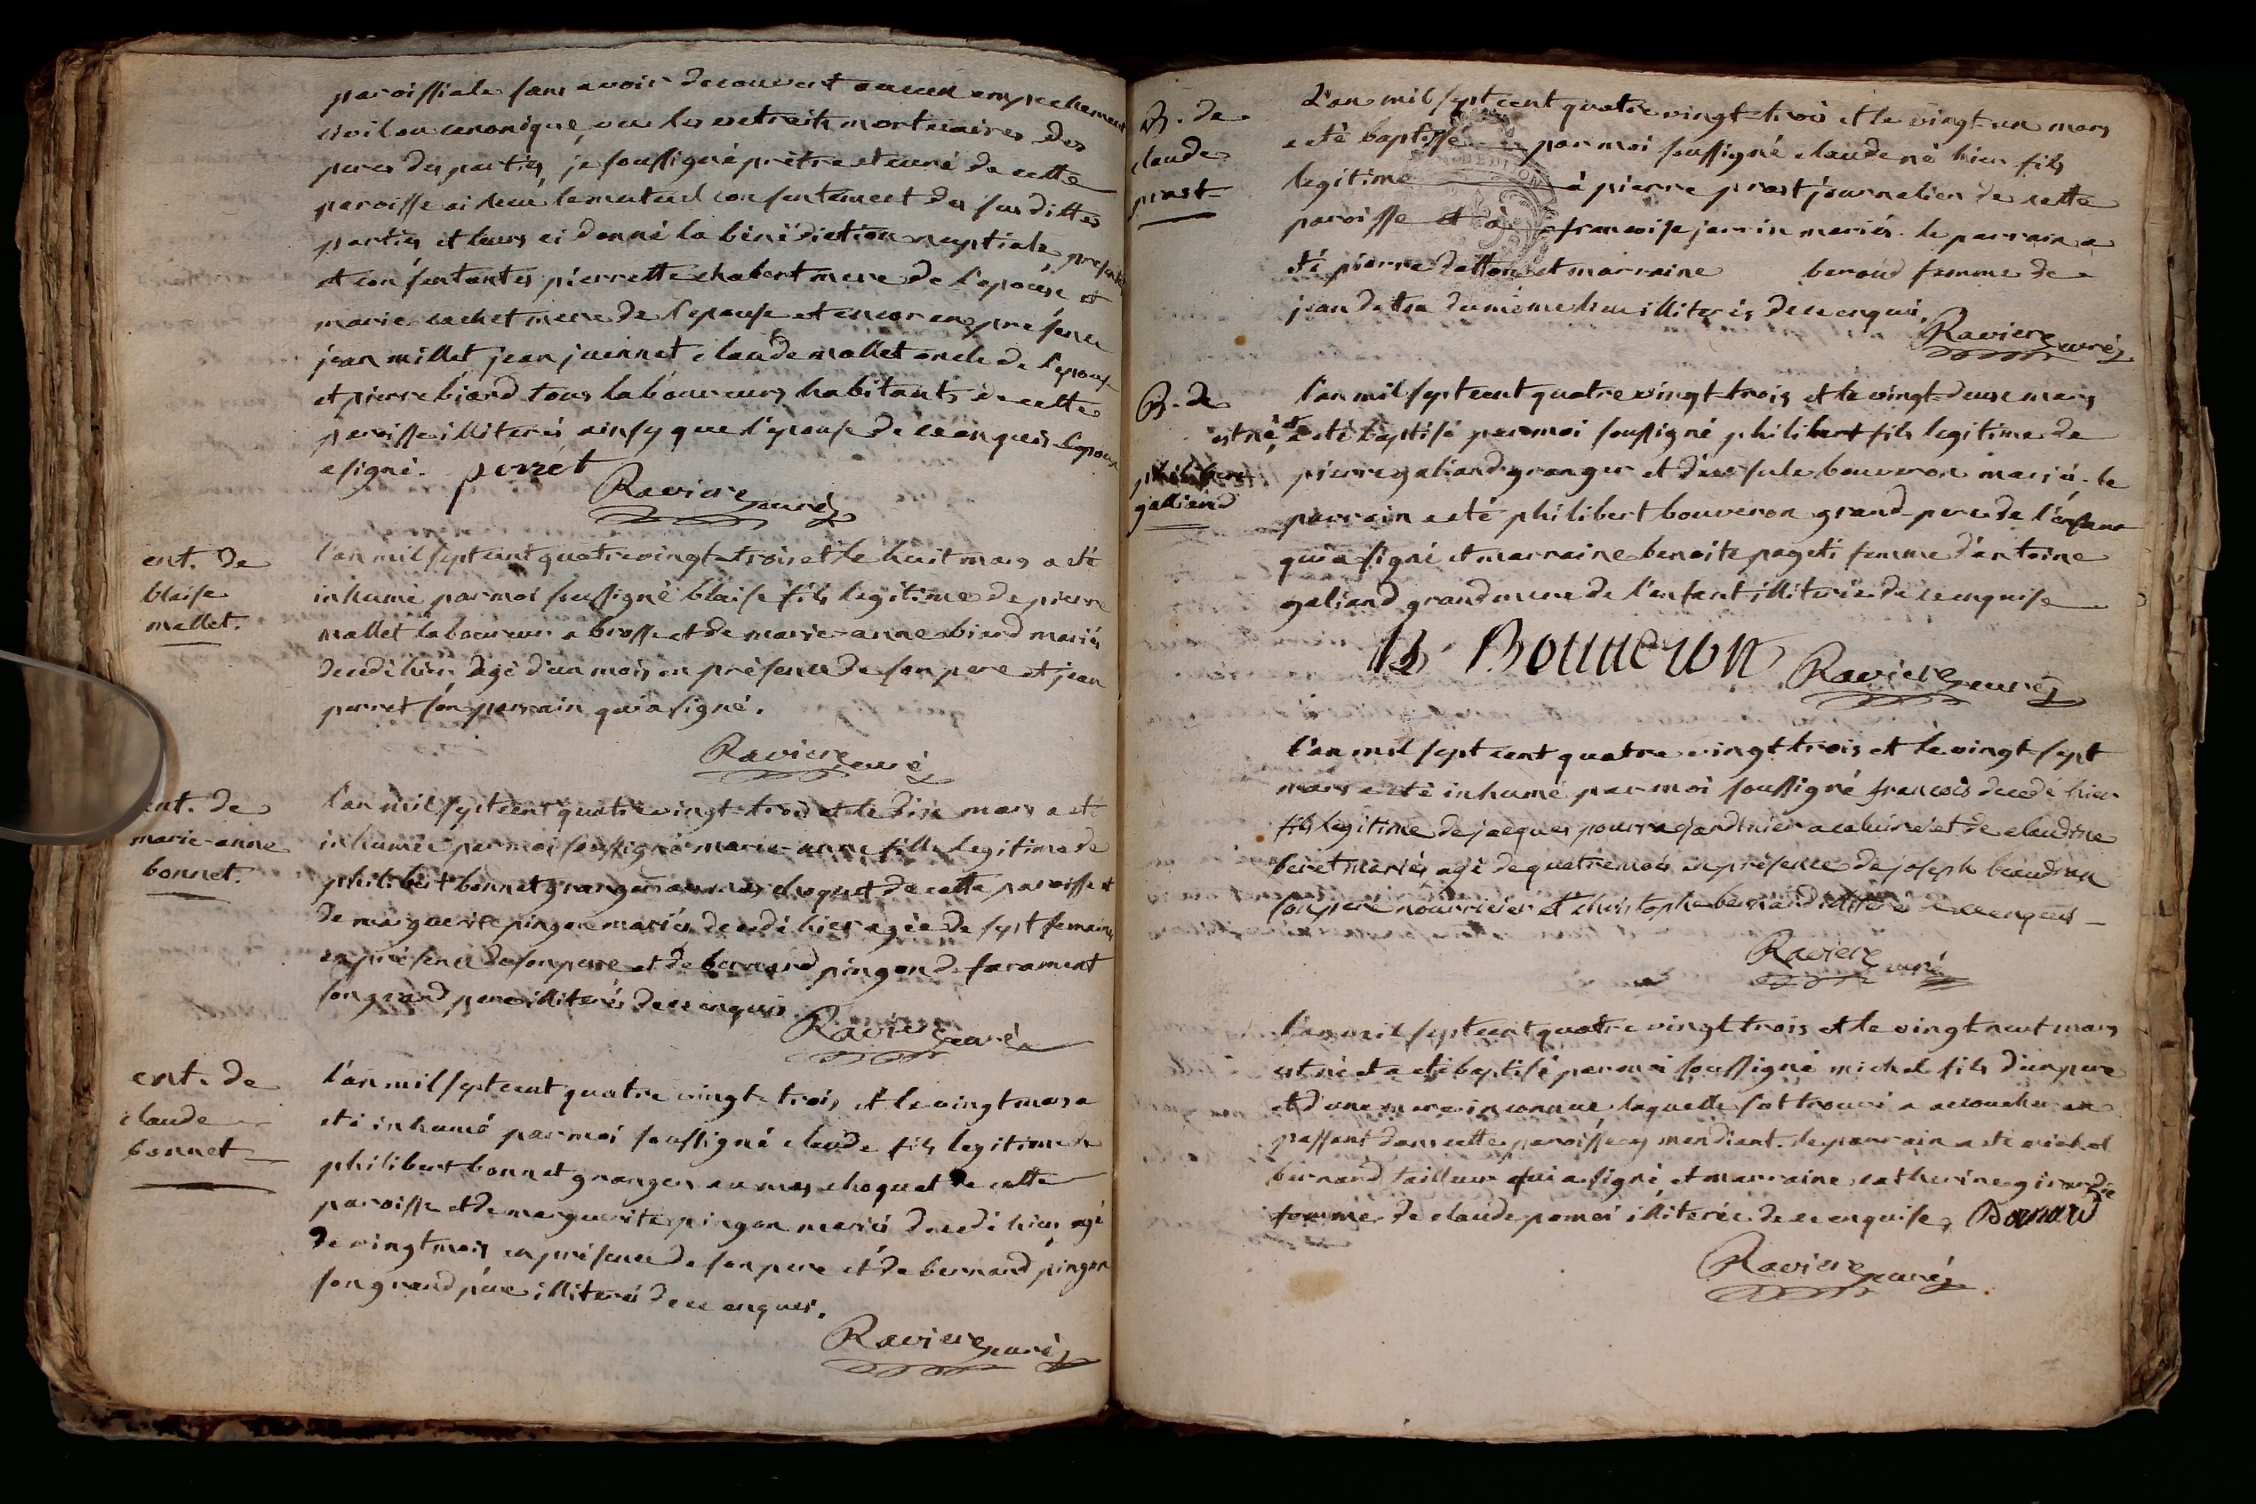 paroissiale sans avoir decouvert aucun empechement
civil ou canonique, vu les extraits mortuaires des
peres des parties, je soussigné prêtre et curé de cette
paroisse ai recu le mutuel consentement des sus dittes
parties et leurs ai donné la bénédiction nuptiale, presentes
et consentantes pierrette chabert mere de l'epouse et
marie cachet mere de l'epouse et encor en présence
jean millet jean juennet claude mallet oncle de l'epoux
et pierre biard tous laboureurs habitants de cette
paroisse illiterés ainsy que l'épouse de ce enquis l'epoux
a signé. perret
Raviere curé
ent. de
blaise
mallet.
l'an mil sept cent quatre vingt-trois et le huit mars a eté
inhumé par moi soussigné blaise fils legitime de pierre
mallet laboureur a brosse et de marie-anne biard mariés
decedé hier agé d'un mois en présence de son pere et jean
perret son parrain qui a signé.
Raviere curé
ent. de
marie-anne
bonnet.
l'an mil sept cent quatre vingt-trois et le dix mars a eté
inhumée par moi soussigné marie-anne fille legitime de
philibert bonnet granger au mas choquet de cette paroisse et
de marguerite pingon mariés decedé hier agée de sept semaines
en présence de son pere et de bernard pingon de faramant
son grand pere illiterés de ce enquis
Raviere curé
ent. de
claude
bonnet
l'an mil sept cent quatre vingt-trois et le vingt mars a
eté inhumé par moi soussigné claude fils legitime de
philibert bonnet granger au mas choquet de cette
paroisse et de marguerite pingon mariés decedé hier agé
de vingt mois en présence de son pere et de bernard pingon
son grand pére illiterés de ce enquis.
Raviere curé
B. de
claude
prost
L'an mil sept cent quatre vingt-trois et le vingt-un mars
a eté baptissé par moi soussigné claude né hier fils
legitime à pierre prost journalier de cette
paroisse et à francoise jarrin mariés. le parrain a
eté pierre datton et marraine beroud femme de
jean du même lieu illiterés de ce enquis.
Raviere curé
B. de
philibert
galliand
l'an mil sept cent quatre vingt-trois et le vingt-deux mars
est né, et a eté baptisé par moi soussigné philibert fils legitime de
pierre galiand granger et d'ursule bouveron mariés. le
parrain a eté philibert bouveron grand-pere de l'enfant
qui a signé et marraine benoite pageti femme d'antoine
galiand grand mere de l'enfant illiterée de ce enquise
B Bouueron
Raviere curé
l'an mil sept cent quatre vingt trois et le vingt sept
mars a eté inhumé par moi soussigné francois decedé hier
fils legitime de jacques pourra jardinier a caluire et de claudine
beret mariés agé de quatre mois en présence de joseph beaudran
son pere nourricier et christophe bernard illiterés de ce enquis
Raviere curé
l'an mil sept cent quatre vingt trois et le vingt neuf mars
est né et a eté baptisé par moi soussigné michel fils d'un pere
et d'une mere inconnue laquelle s'est trouvé a accoucher en
passant dans cette paroisse en mendiant. le parrain a eté michel
bernard tailleur qui a signé et marraine catherine girardie
femme de claude pomei illiterée de ce enquise, Bernard
Raviere curé